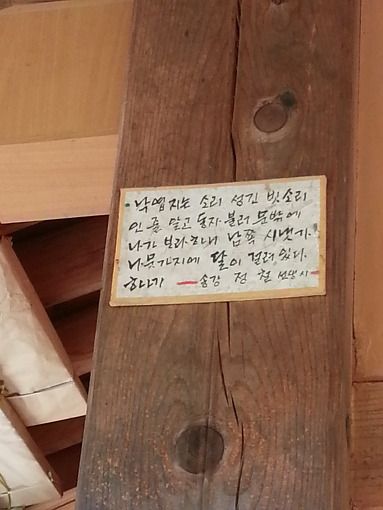 낙엽지는 소리 성긴 빗소리
인 줄 알고 동자 불러 문밖에
나가 보라하니 남쪽 시냇가
나뭇가지에 달이 걸려있다.
하니기 — 송강 정 철